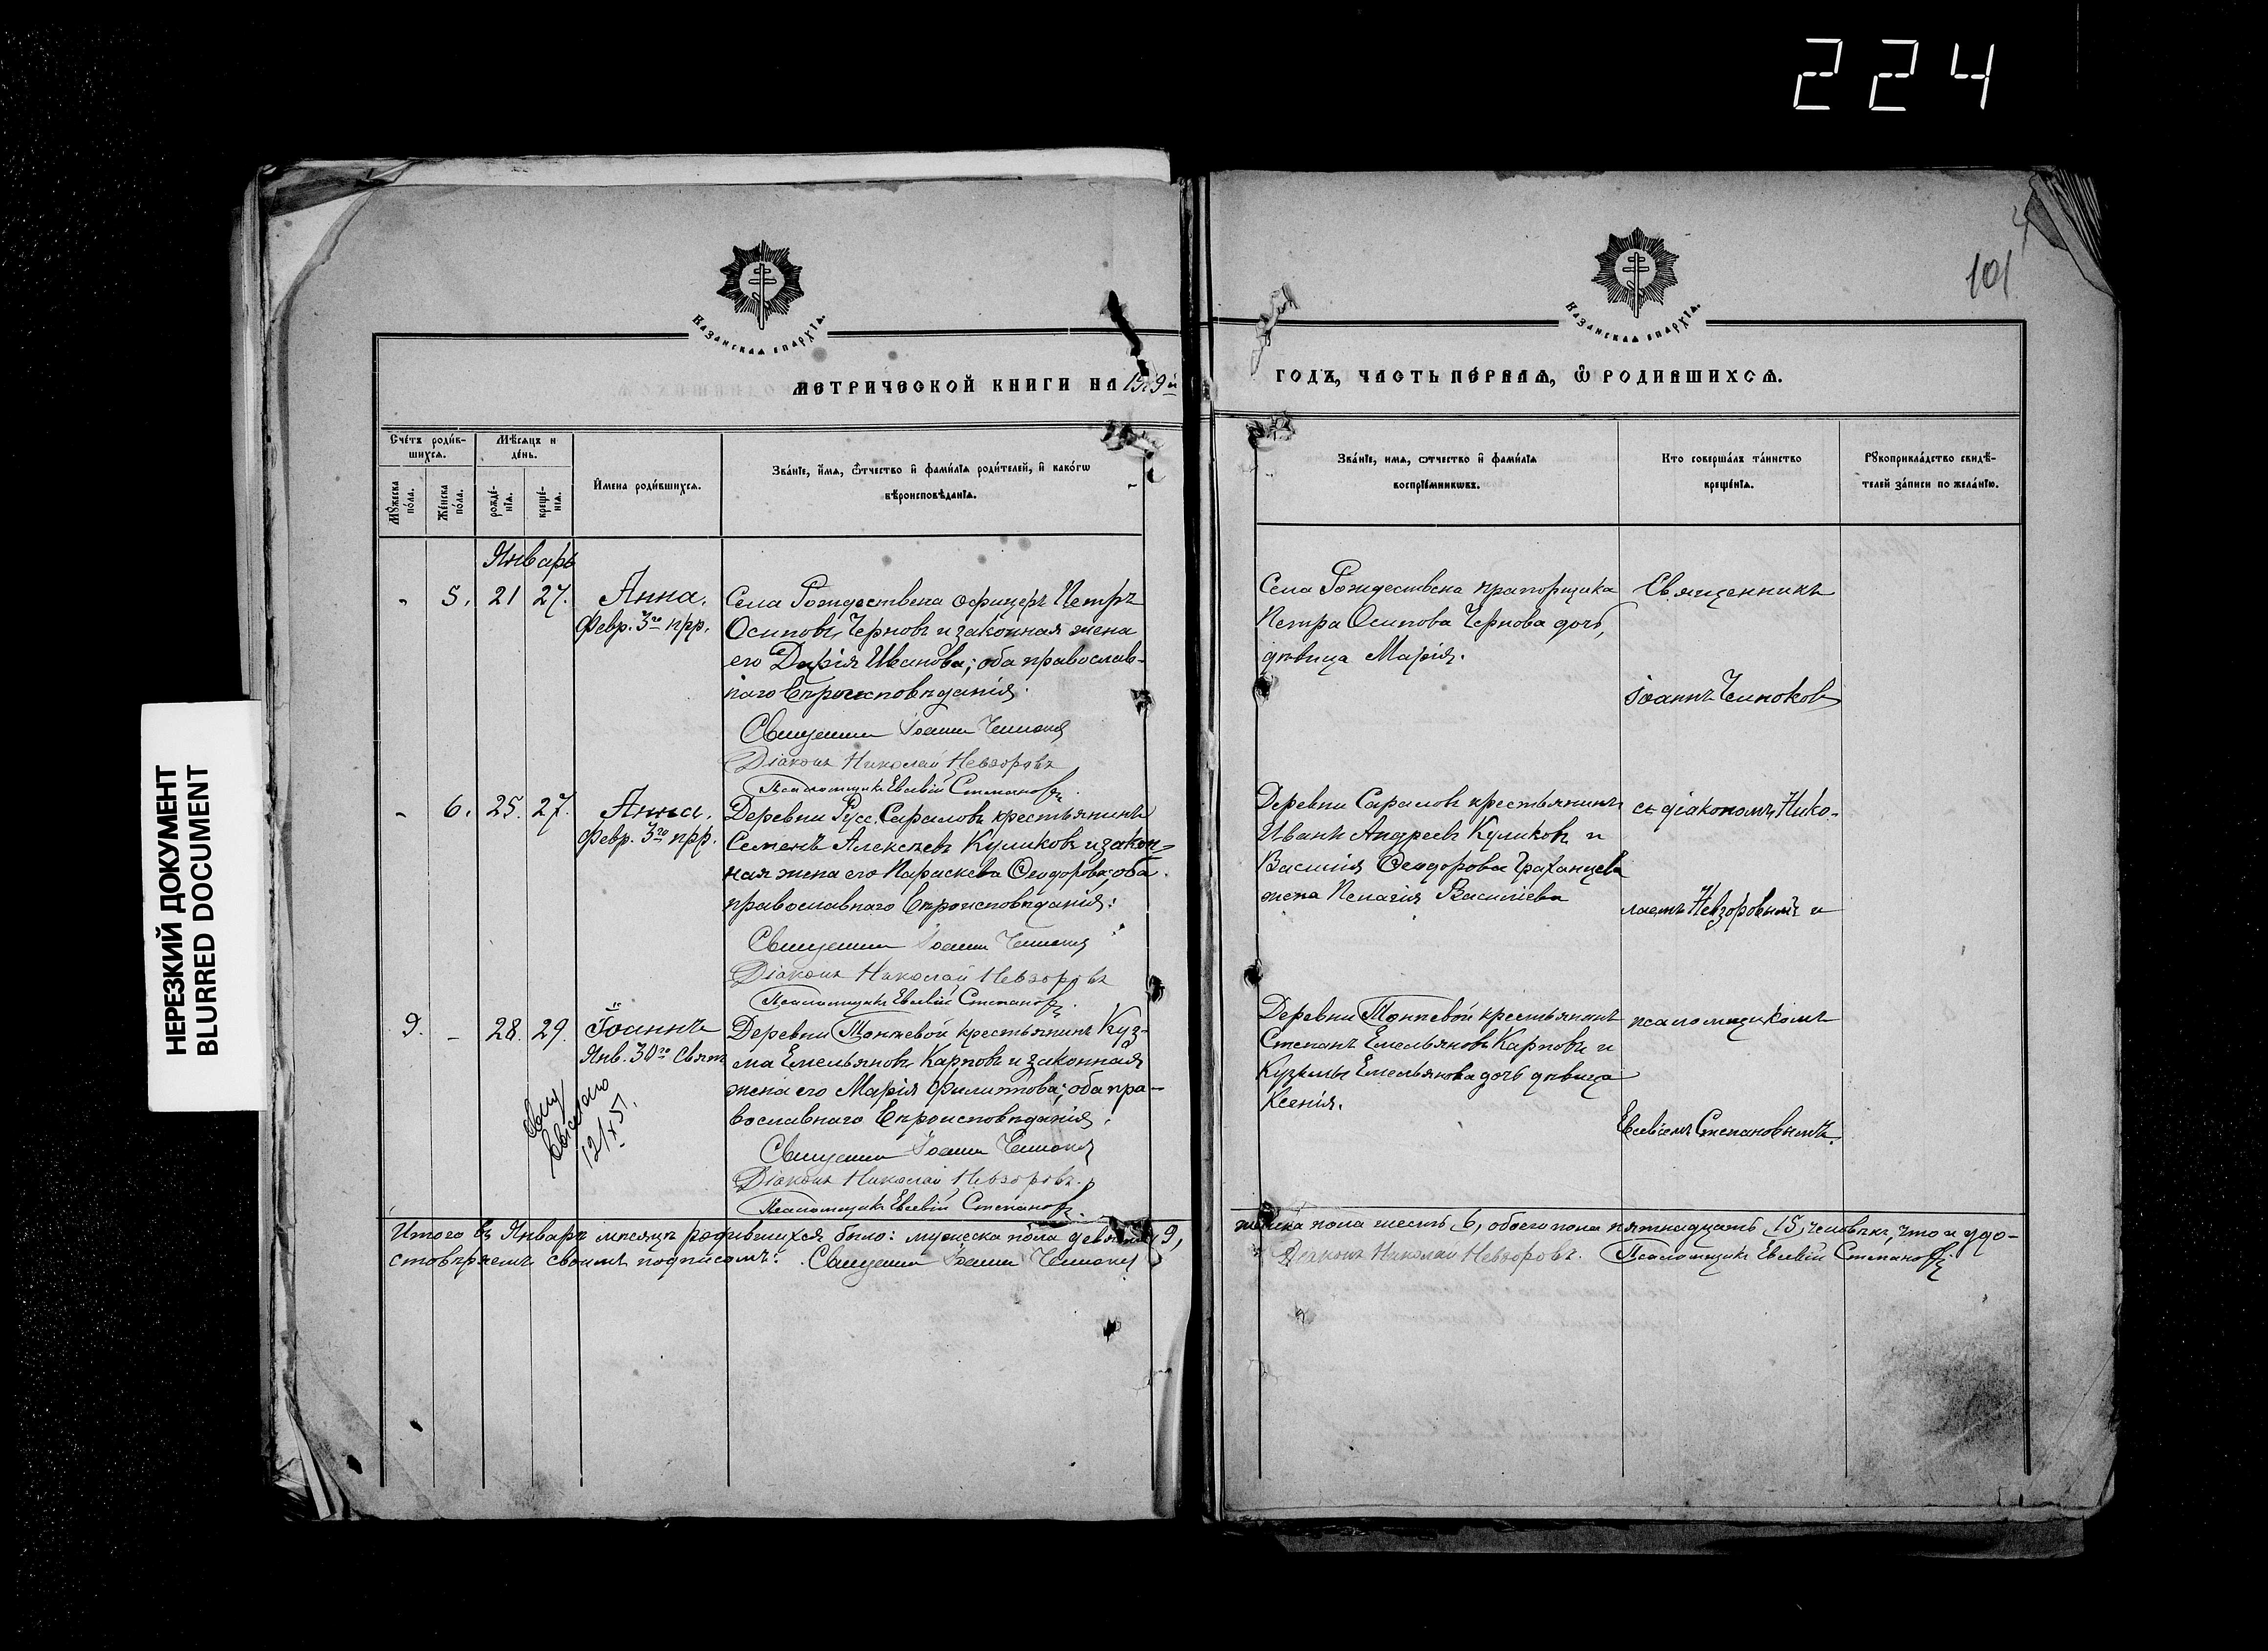 224
НЕРЕЗКИЙ ДОКУМЕНТ
BLURRED DOCUMENT
101
Казанская епархїѧ.
Казанская епархїѧ.
МЕТРИЧЕСКОЙ КНИГИ НА
ГОДЪ, ЧАСТЬ ПЕ́РВАЯ, Ѡ РОДИВШИХСѦ.
Сче́тъ роди́в-
шихсѧ.
Мꙋжеска
по́ла.
Же́нска
по́ла.
Мѣ́сѧцъ и
де́нь.
рожде́-
нїѧ.
креще́-
нїѧ.
И́мена роди́вшихсѧ.
Зва́нїе, и́мѧ, ѻ́тчество и҆ фами́лїѧ роди́телей, и҆ како́гѡ
вѣроисповѣ́данїѧ.
Зва́нїе, имѧ, ѻтчество и҆ фами́лїѧ
воспрїе́мникѡвъ.
Кто соверша́лъ та́инство
креще́нїѧ.
Рꙋкоприкла́дство свидѣ́-
телей за́писи по жела́нїю.
Январь
- 5. 21 27. Анна.
Февр. 3го прр.
Села Рождествена офицеръ Петръ
Осиповъ Черновъ и законная жена
его Дарія Иванова; оба православ-
наго вѣроисповѣданія.
Священникъ Іоаннъ
Діаконъ Николай Невзоровъ
Псаломщикъ Евсевій Степановъ.
Села Рождествена прапорщика
Петра Осипова Чернова дочь,
дѣвица Марія.
Священникъ
Іоаннъ
- 6. 25. 27. Анна.
Февр. 3го прр.
Деревни Русс. Саралов крестьянинъ
Семенъ Алексѣевъ Куликовъ и закон-
ная жена его Параскева Ѳеодорова; оба
православнаго вѣроисповѣданія.
Священникъ Іоаннъ
Діаконъ Николай Невзоровъ
Псаломщикъ Евсевій Степановъ.
Деревни Саралов крестьянинъ
Иванъ Андреевъ Куликовъ и
Василія Ѳеодорова
жена Пелагія Васильева
съ діакономъ Нико-
лаемъ Невзоровымъ и
9. - 28. 29. Іоаннъ
Янв. 30го Свят.
выслано
Деревни крестьянинъ Куз-
ма Емельяновъ Карповъ и законная
жена его Марія Филиппова; оба пра-
вославнаго вѣроисповѣданія.
Священникъ Іоаннъ
Діаконъ Николай Невзоровъ.
Псаломщикъ Евсевій Степановъ.
Деревни крестьянинъ
Степанъ Емельяновъ Карповъ и
Кузьмы Емельянова дочь дѣвица
Ксенія.
псаломщикомъ
Евсевіемъ Степановымъ.
Итого въ Январѣ мѣсяцѣ родившихся было: мужеска пола девять 9,
женска пола шесть 6, обоего пола пятнадцать 15, человѣкъ, что и удо-
стовѣряемъ своимъ подписомъ: Священникъ Іоаннъ
Діаконъ Николай Невзоровъ. Псаломщикъ Евсевій Степановъ.